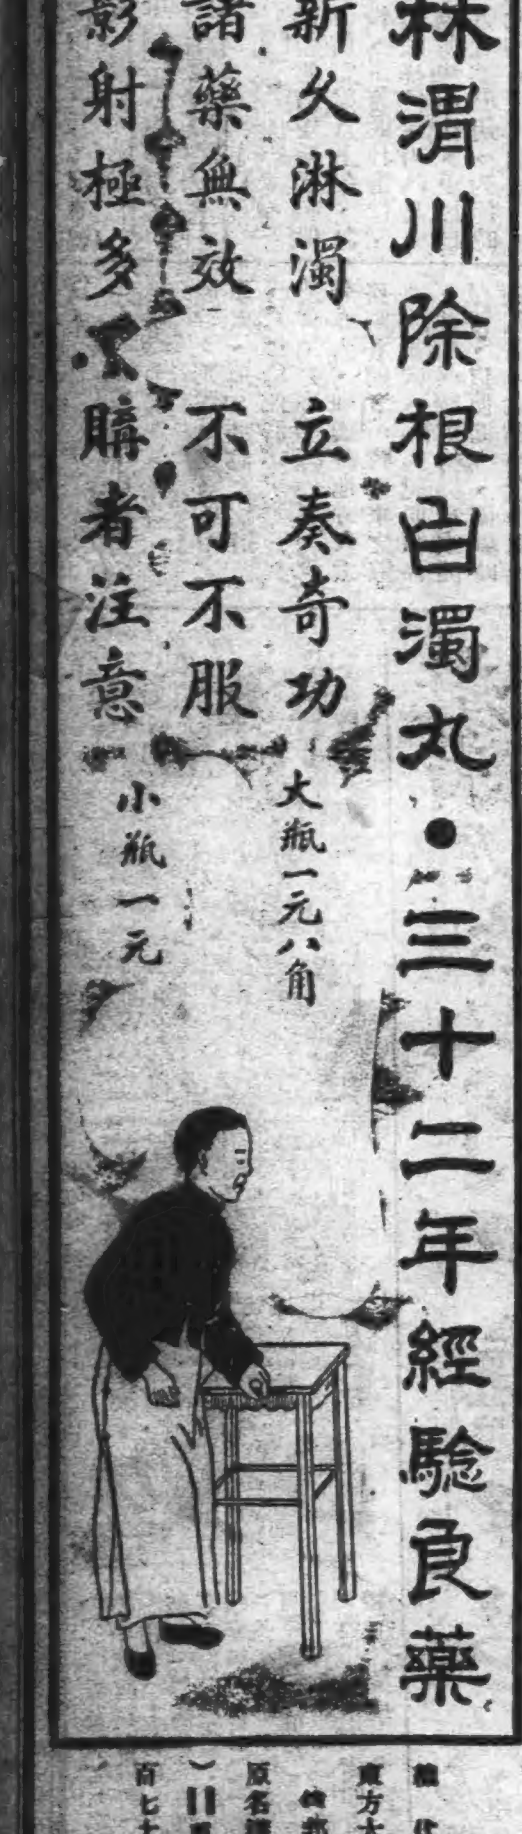 林渭川除根白濁丸•三十二年經驗良藥
新久淋濁 立奏奇功
大瓶一元八角
諸藥無效 不可不服
影射極多 購者注意
小瓶一元
東方大
原名
百七十